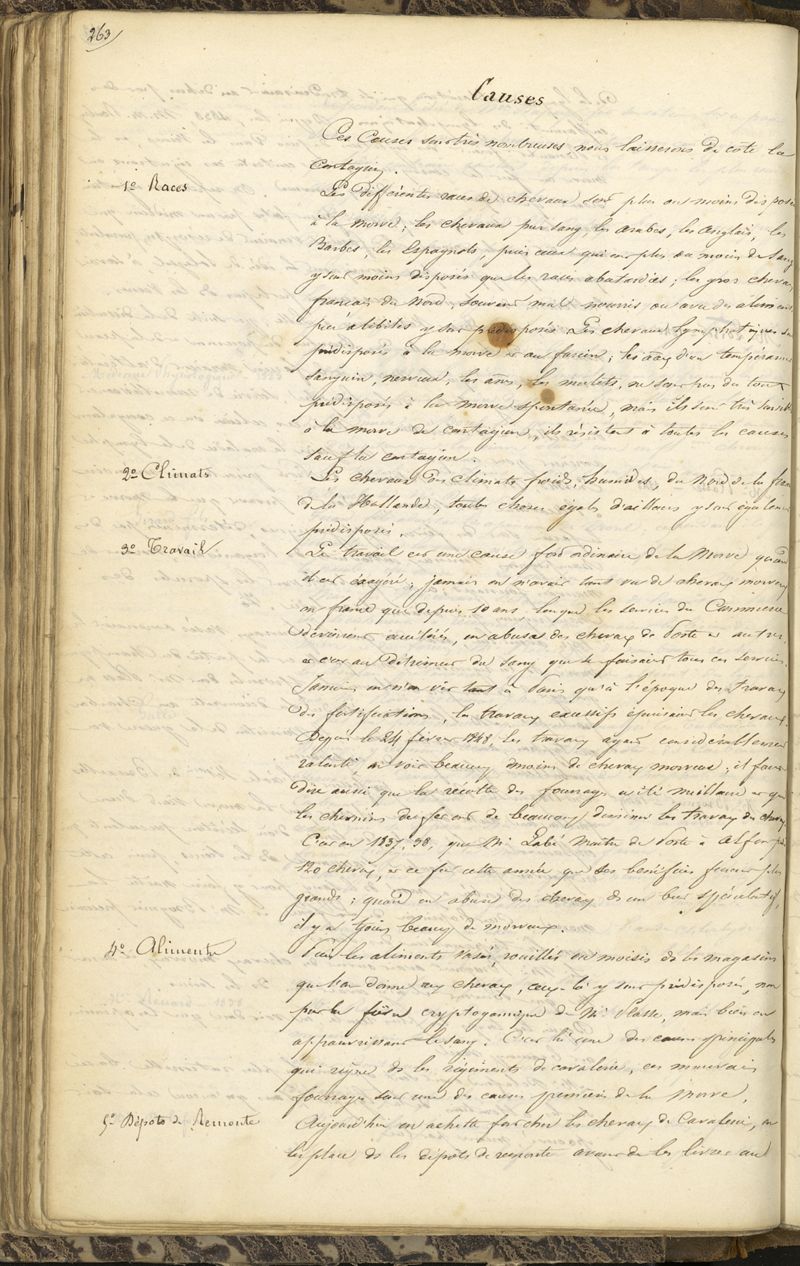 263
Causes
Ces Causes sont très nombreuses nous laisserons de coté la
Contagion.
1º Races
Les différentes races de chevaux sont plus ou moins disposés
à la morve; les chevaux pur sang les arabes, les anglais, les
Barbes, les Espagnols, puis ceux qui ont plus ou moins de sang
y sont moins disposés que les races abatardies; les gros chevaux
francais du Nord, souvent mal nourris ou avec des aliments
peu alibiles y sont prédisposés. Les chevaux lymphatiques sont
prédisposés à la morve et au farcin; les d'un tempérament
sanguin, nerveux; les ânes, les mulets, ne sont pas du tout
prédisposés à la morve spontanée, mais ils sont très
à la morve de contagion, ils résistent à toutes les causes
sauf la contagion.
2º Climats
Les chevaux des climats froids, humides, du Nord de la france
de la Hollande, toutes choses égales d'ailleurs y sont également
prédisposés.
3º Travail
Le travail est une cause fort ordinaire de la Morve quand
il est exagéré; jamais on n'avait tant vu de chevaux morveux
en france que depuis 10 ans, lorsque les services du Commerce
devinrent accélérés, on abusa des chevaux de Poste et autres
et c'est au détriment du sang que se faisaient tous ces services.
Jamais on n'en vit tant à Paris qu'à l'époque des travaux
des fortifications, les travaux excessifs épuisaient les chevaux.
Depuis le 24 février 1848, les travaux ayant considérablement
ralenti, on voit beaucoup moins de chevaux morveux; il faut
dire aussi que la récolte des fourrages a été meilleure et que
les chemins de fer ont de beaucoup diminué les travaux des chevaux
C'est en 1837, 38, que Mr Labé Maître de Poste à Alfort
120 chevaux, et ce fut cette année que ses bénéfices furent plus
grands; quand on abuse des chevaux ds un but spéculatif,
il y a tjours beaucoup de morveux.
4º Aliments
Puis les aliments vasés, rouillés ou moisis ds les magasins
que l'on donne aux chevaux, ceux-là y sont prédisposés, non
par la cryptogamique de Mr Plasse, mais bien en
appauvrissant le sang. C'est là une des causes principales
qui règne ds les régiments de cavalerie, ces mauvais
fourrages sont une des causes premières de la morve.
5º Dépots de Remonte
Aujourd'hui on achette fort cher les chevaux de Cavalerie, on
les place ds les dépots de remonte avant de les livrer aux